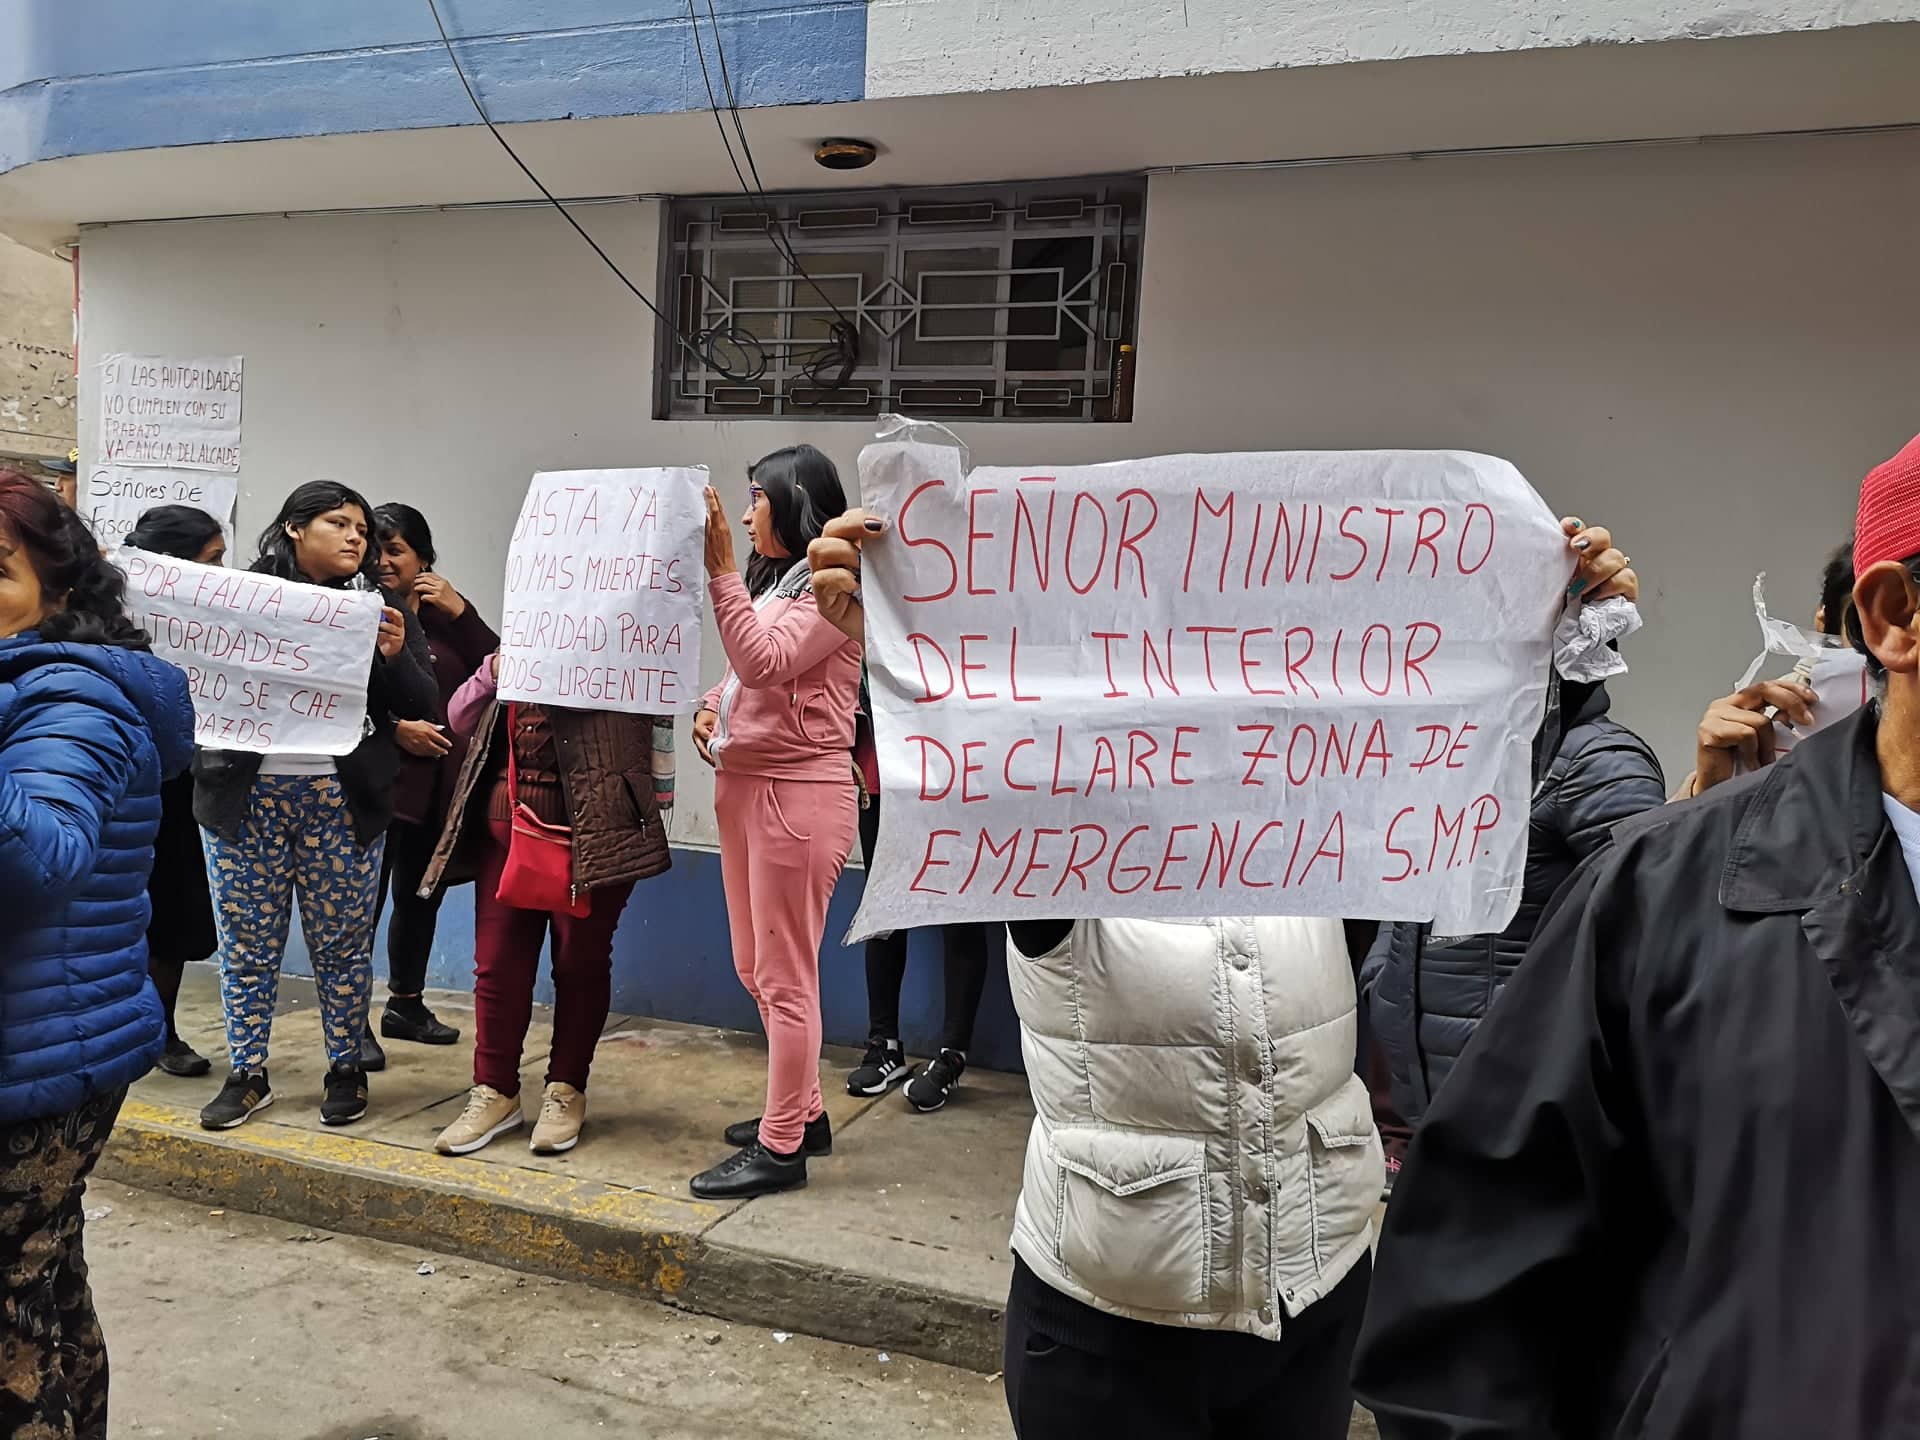 SI LAS AUTORIDADES
NO CUMPLEN CON SU
TRABAJO
VACANCIA DEL ALCALDE
SEñores DE
Fiscal
POR FALTA DE
UTORIDADES
BLO SE CAE
DAZOS
BASTA YA
NO MAS MUERTES
EGURIDAD PARA
DOS URGENTE
SEÑOR MINISTRO
DEL INTERIOR
DECLARE ZONA DE
EMERGENCIA S.M.P.